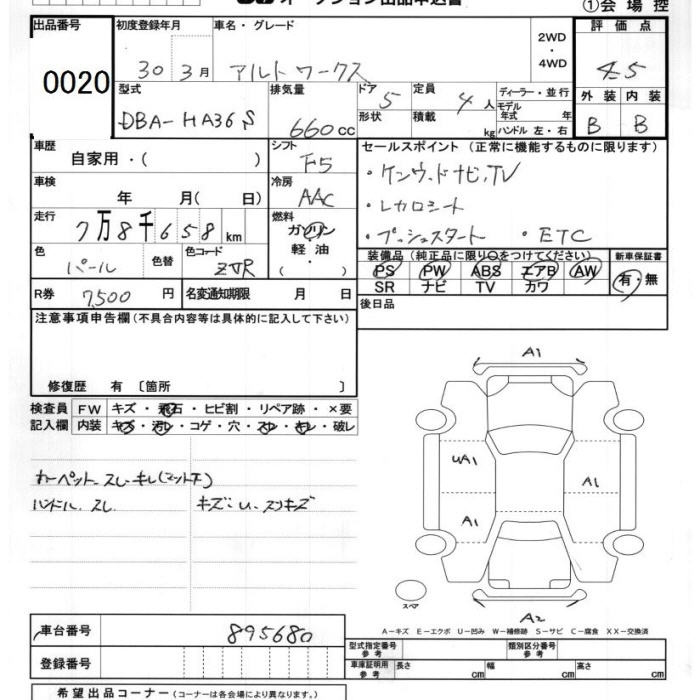 オークション出品申込書 ①会場控
出品番号 初度登録年月 車名・グレード 評価点
0020 30 3月 アルトワークス 2WD ・ 4WD 4.5
型式 排気量 ドア 5 定員 4人 ディーラー・並行 外装 内装
DBA-HA36S 660cc 形状 積載 kg モデル年式 年 B B
ハンドル 左・右
車歴 自家用・( ) シフト F5 セールスポイント (正常に機能するものに限ります)
車検 年 月( 日) 冷房 AAC ・ケンウッドナビ、TV
走行 7万8千658km 燃料 ガソリン ・レカロシート
軽油 ・プッシュスタート ・ETC
色 パール 色替 色コード ZVR ( ) 装備品(純正品に限り○をつけてください) 新車保証書
PS PW ABS エアB AW 有・無
SR ナビ TV カワ
R券 7,500 円 名変通知期限 月 日 後日品
注意事項申告欄(不具合内容等は具体的に記入して下さい)
修復歴 有 〔箇所 〕
検査員 FW キズ・飛石・ヒビ割・リペア跡・×要
記入欄 内装 キズ・汚レ・コゲ・穴・スレ・キレ・破レ
カーペット スレ・キレ(マット下)
ハンドル スレ キズ・U・スリキズ
A1
UA1 A1
A1
スペア
A2
A-キズ E-エクボ U-凹み W-補修跡 S-サビ C-腐食 XX-交換済
車台番号 895680
登録番号
型式指定番号 参考 類別区分番号 参考
車庫証明用 参考 長さ cm 幅 cm 高さ cm
希望出品コーナー(コーナーは各会場により異なります。)